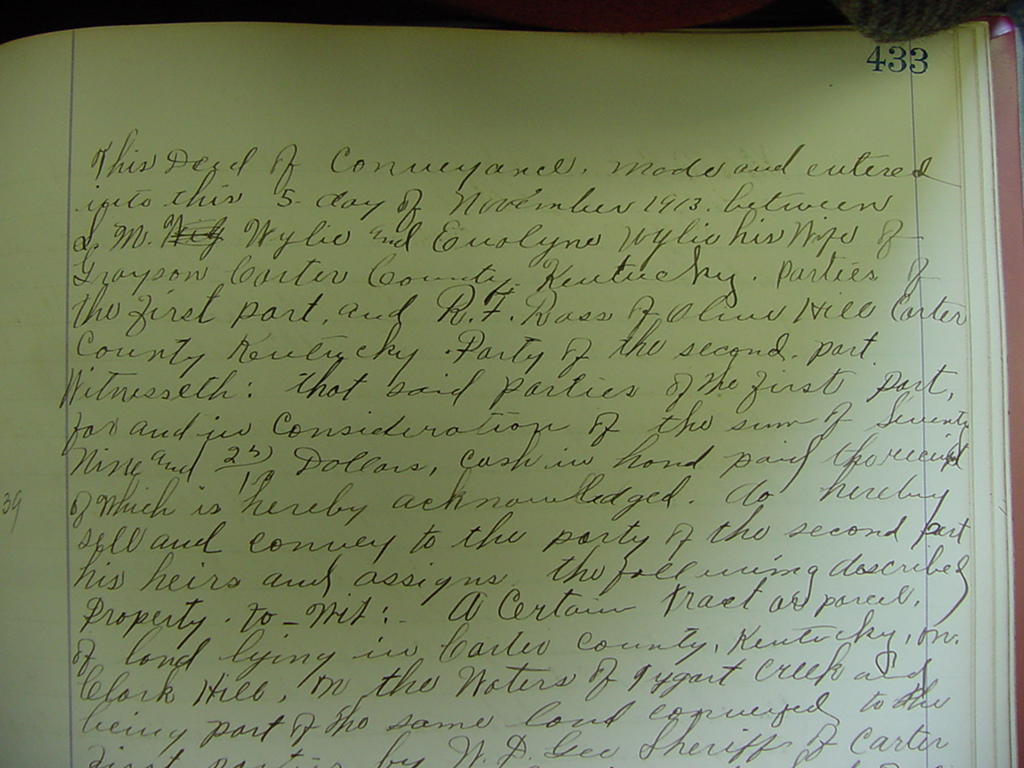 433
This Deed of Conveyance. made and entered
into this 5 day of November 1913. between
L. M. Wylie and Evolyne Wylie his Wife of
Grayson Carter County, Kentucky. Parties of
the first part, and R. F. Ross of Olive Hill Carter
County Kentucky. Party of the second. part
Witnesseth: that said parties of the first part,
for and in Consideration of the sum of Seventy
Nine and Dollars, Cash in hand paid the reciept
of which is hereby acknowledged. do hereby
39
sell and convey to the party of the second part
his heirs and assigns the following described
Property. to-Wit:- A Certain tract or parcel.
of land lying in Carter county, Kentucky, on.
Clark Hill, on the Waters of Tygart Creek and
being part of the same land conveyed to the
first parties by W. D. Gee Sheriff of Carter